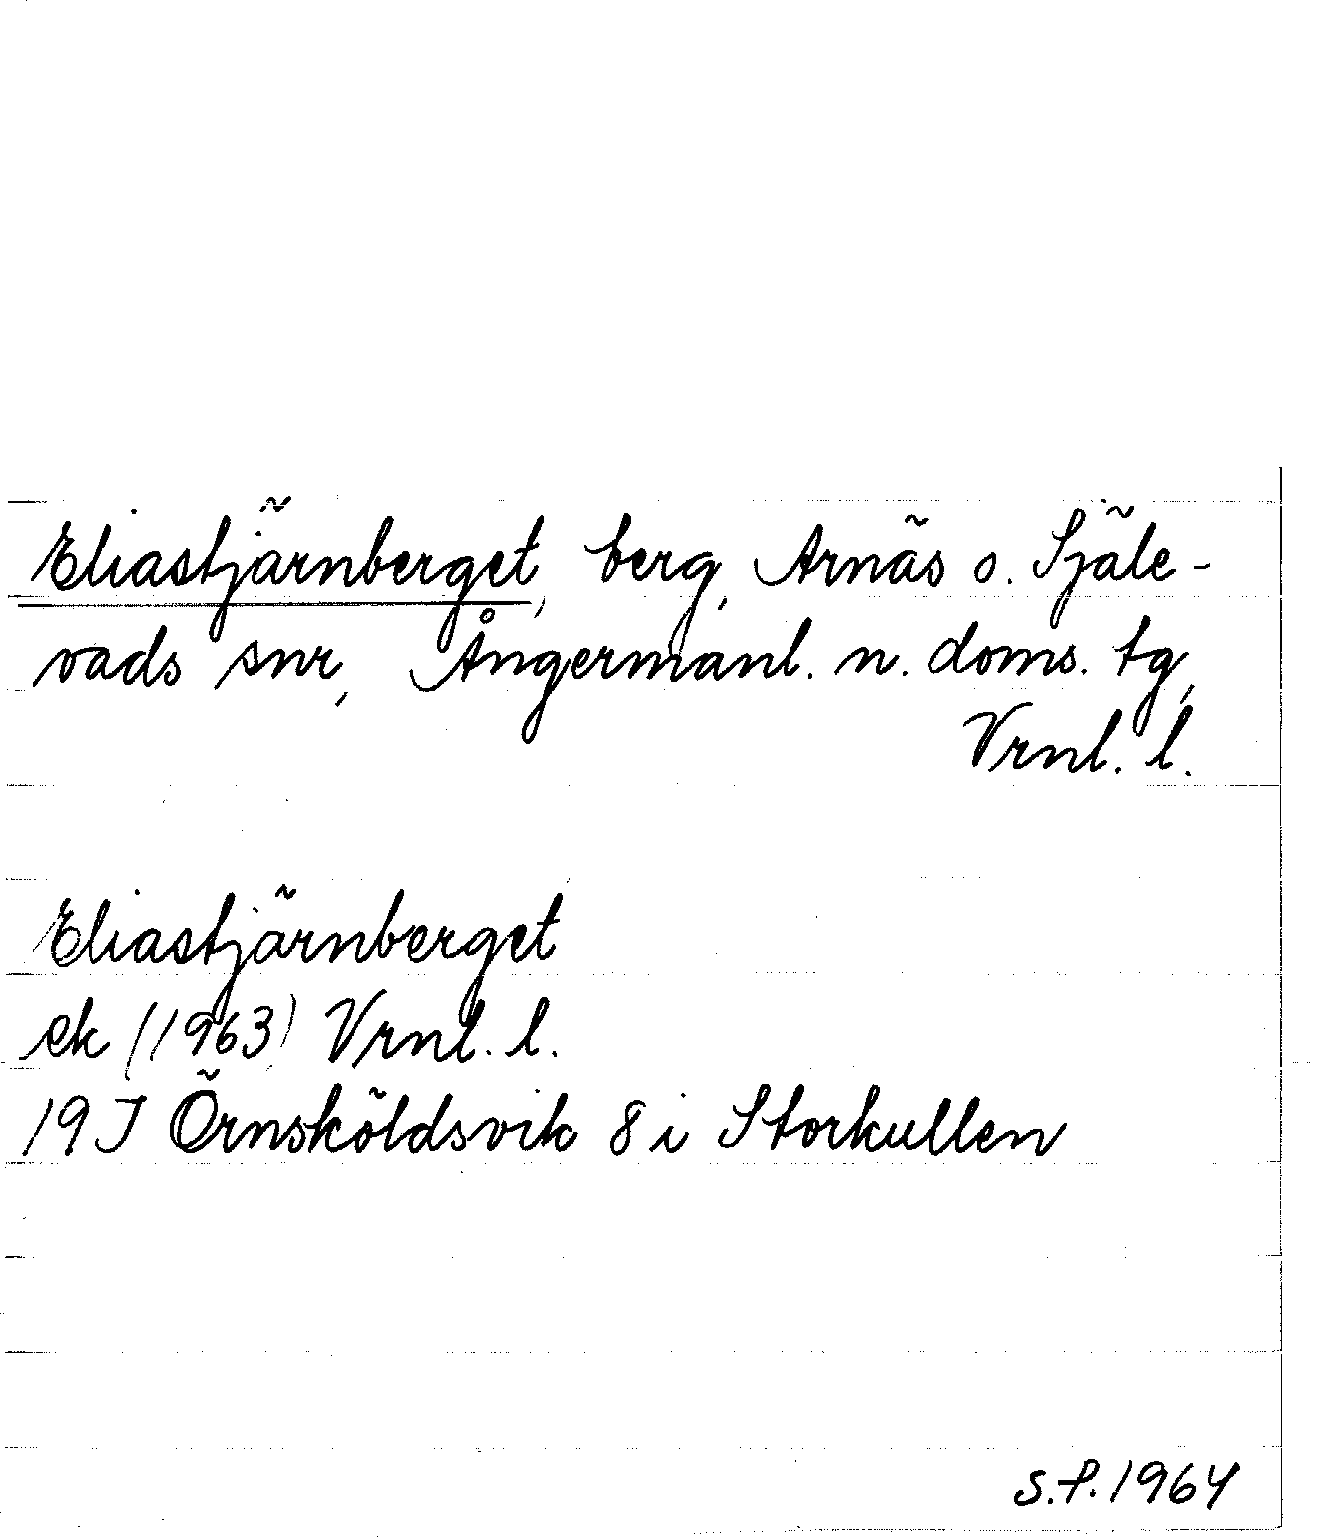 Eliastjärnberget, berg, Arnäs o. Själe-
vads snr, Ångermanl. n. doms. tg,
Vrnl. l.
Eliastjärnberget
ek (1963) Vrnl. l.
19J Örnsköldsvik 8 i Storkullen
S.F. 1964